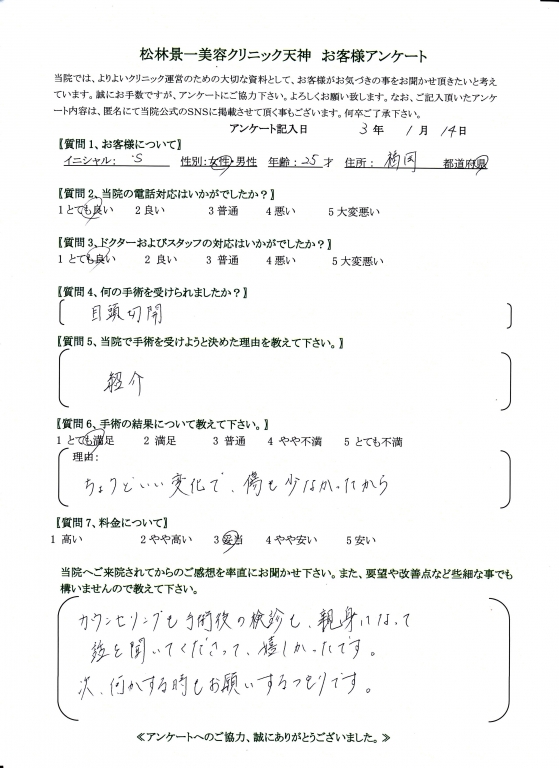 松林景一美容クリニック天神　お客様アンケート
当院では、よりよいクリニック運営のための大切な資料として、お客様がお気づきの事をお聞かせ頂きたいと考え
ています。誠にお手数ですが、アンケートにご協力下さい。よろしくお願い致します。なお、ご記入頂いたアンケ
ート内容は、匿名にて当院公式のSNSに掲載させて頂く事もございます。何卒ご了承下さい。
アンケート記入日　3 年　1 月　14 日
【質問1、お客様について】
イニシャル：　S　性別：女性・男性　年齢：25 才　住所：　福岡　都道府県
【質問2、当院の電話対応はいかがでしたか？】
1 とても良い　2 良い　3 普通　4 悪い　5 大変悪い
【質問3、ドクターおよびスタッフの対応はいかがでしたか？】
1 とても良い　2 良い　3 普通　4 悪い　5 大変悪い
【質問4、何の手術を受けられましたか？】
目頭切開
【質問5、当院で手術を受けようと決めた理由を教えて下さい。】
紹介
【質問6、手術の結果について教えて下さい。】
1 とても満足　2 満足　3 普通　4 やや不満　5 とても不満
理由：
ちょうどいい変化で、傷も少なかったから
【質問7、料金について】
1 高い　2 やや高い　3 妥当　4 やや安い　5 安い
当院へご来院されてからのご感想を率直にお聞かせ下さい。また、要望や改善点など些細な事でも
構いませんので教えて下さい。
カウンセリングも手術後の検診も、親身になって
話を聞いてくださって、嬉しかったです。
次、何かする時もお願いするつもりです。
≪アンケートへのご協力、誠にありがとうございました。≫